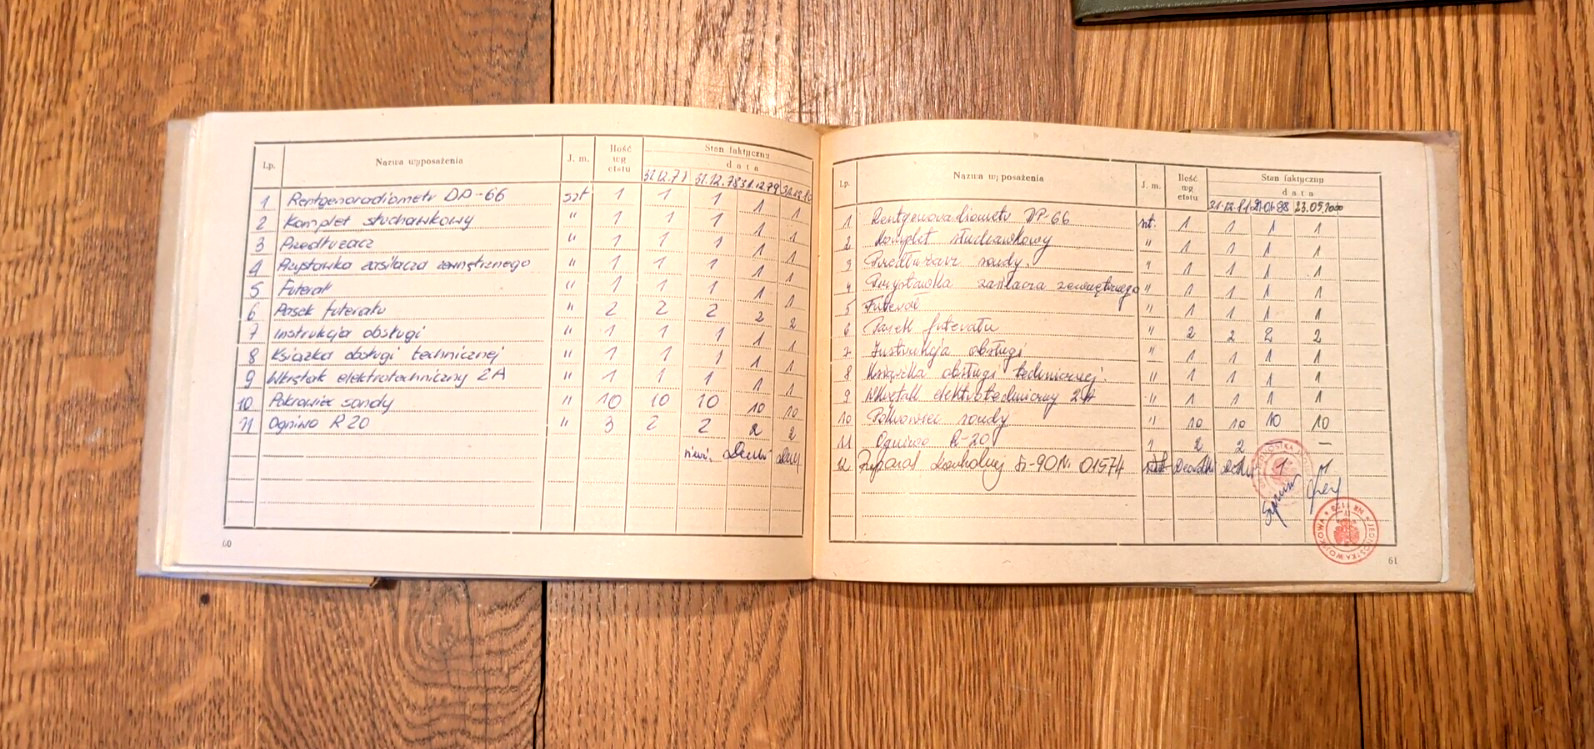 Lp. Nazwa wyposażenia J. m. Ilość wg etatu Stan faktyczny
data
31.12.77 31.12.78 31.12.79
1 Rentgenoradiometr DP-66 szt 1 1 1 1 1
2 Komplet słuchawkowy " 1 1 1 1 1
3 Przedłużacz " 1 1 1 1 1
4 Przystawka zasilacza zewnętrznego " 1 1 1 1 1
5 Futerał " 1 1 1 1 1
6 Pasek futerału " 2 2 2 2 2
7 Instrukcja obsługi " 1 1 1 1 1
8 Książka obsługi technicznej " 1 1 1 1 1
9 Wkrętak elektrotechniczny 2A " 1 1 1 1 1
10 Pokrowiec sondy " 10 10 10 10 10
11 Ogniwo R20 " 3 2 2 2 2
60
Lp. Nazwa wyposażenia J. m. Ilość wg etatu Stan faktyczny
data
23.05.2000
1 Rentgenoradiometr DP-66 szt. 1 1 1 1
2 Komplet słuchawkowy " 1 1 1 1
3 Przedłużacz sondy. " 1 1 1 1
4 Przystawka zasilacza zewnętrznego " 1 1 1 1
5 Futerał " 1 1 1 1
6 Pasek futerału " 2 2 2 2
7 Instrukcja obsługi " 1 1 1 1
8 Książka obsługi technicznej. " 1 1 1 1
9 Wkrętak elektrotechniczny 2A " 1 1 1 1
10 Pokrowiec sondy " 10 10 10 10
11 Ogniwo R-20 " 2 2 – –
12 Preparat kontrolny Nr 01574 1 1
JEDNOSTKA WOJSKOWA
61